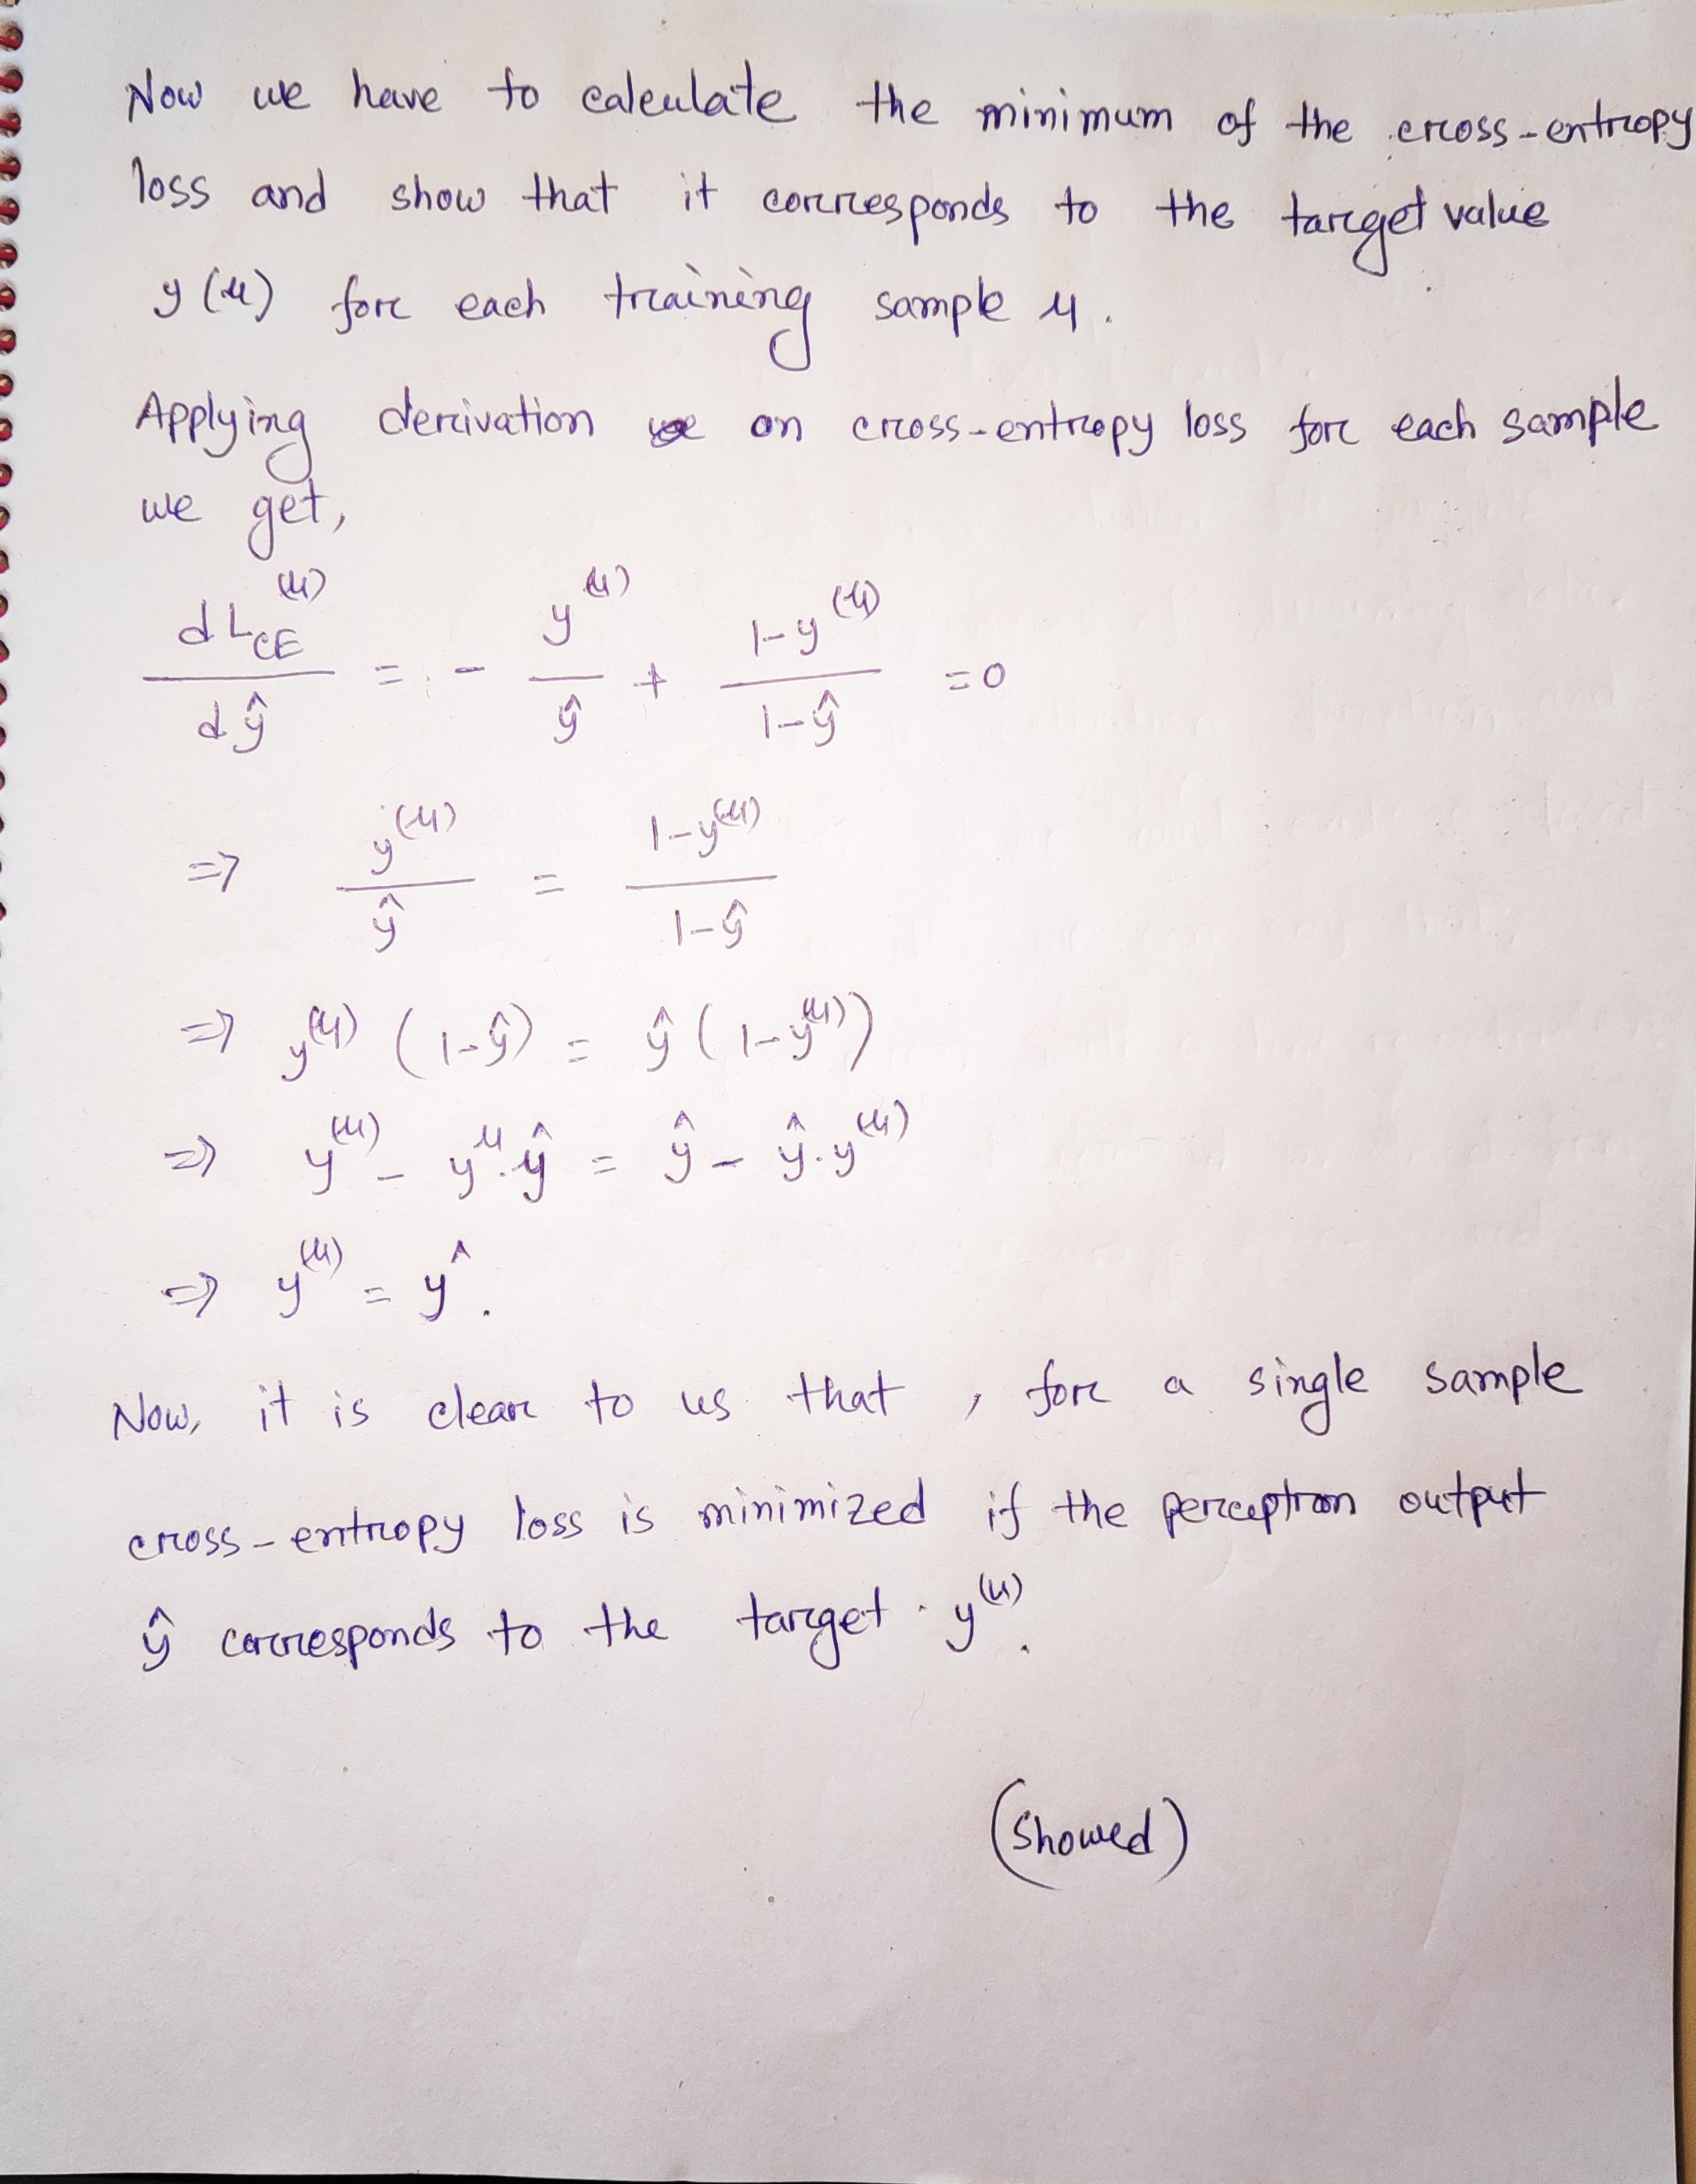 Now we have to calculate the minimum of the cross-entropy
loss and show that it corresponds to the target value
y(μ) for each training sample μ.
Applying derivation on cross-entropy loss for each sample
we get,
dL_CE^(μ) / dŷ = - y^(μ) / ŷ + 1-y^(μ) / 1-ŷ = 0
=> y^(μ) / ŷ = 1-y^(μ) / 1-ŷ
=> y^(μ) (1-ŷ) = ŷ (1-y^(μ))
=> y^(μ) - y^μ.ŷ = ŷ - ŷ.y^(μ)
=> y^(μ) = ŷ.
Now, it is clear to us that, for a single sample
cross-entropy loss is minimized if the perceptron output
ŷ corresponds to the target y^(μ).
(Showed)